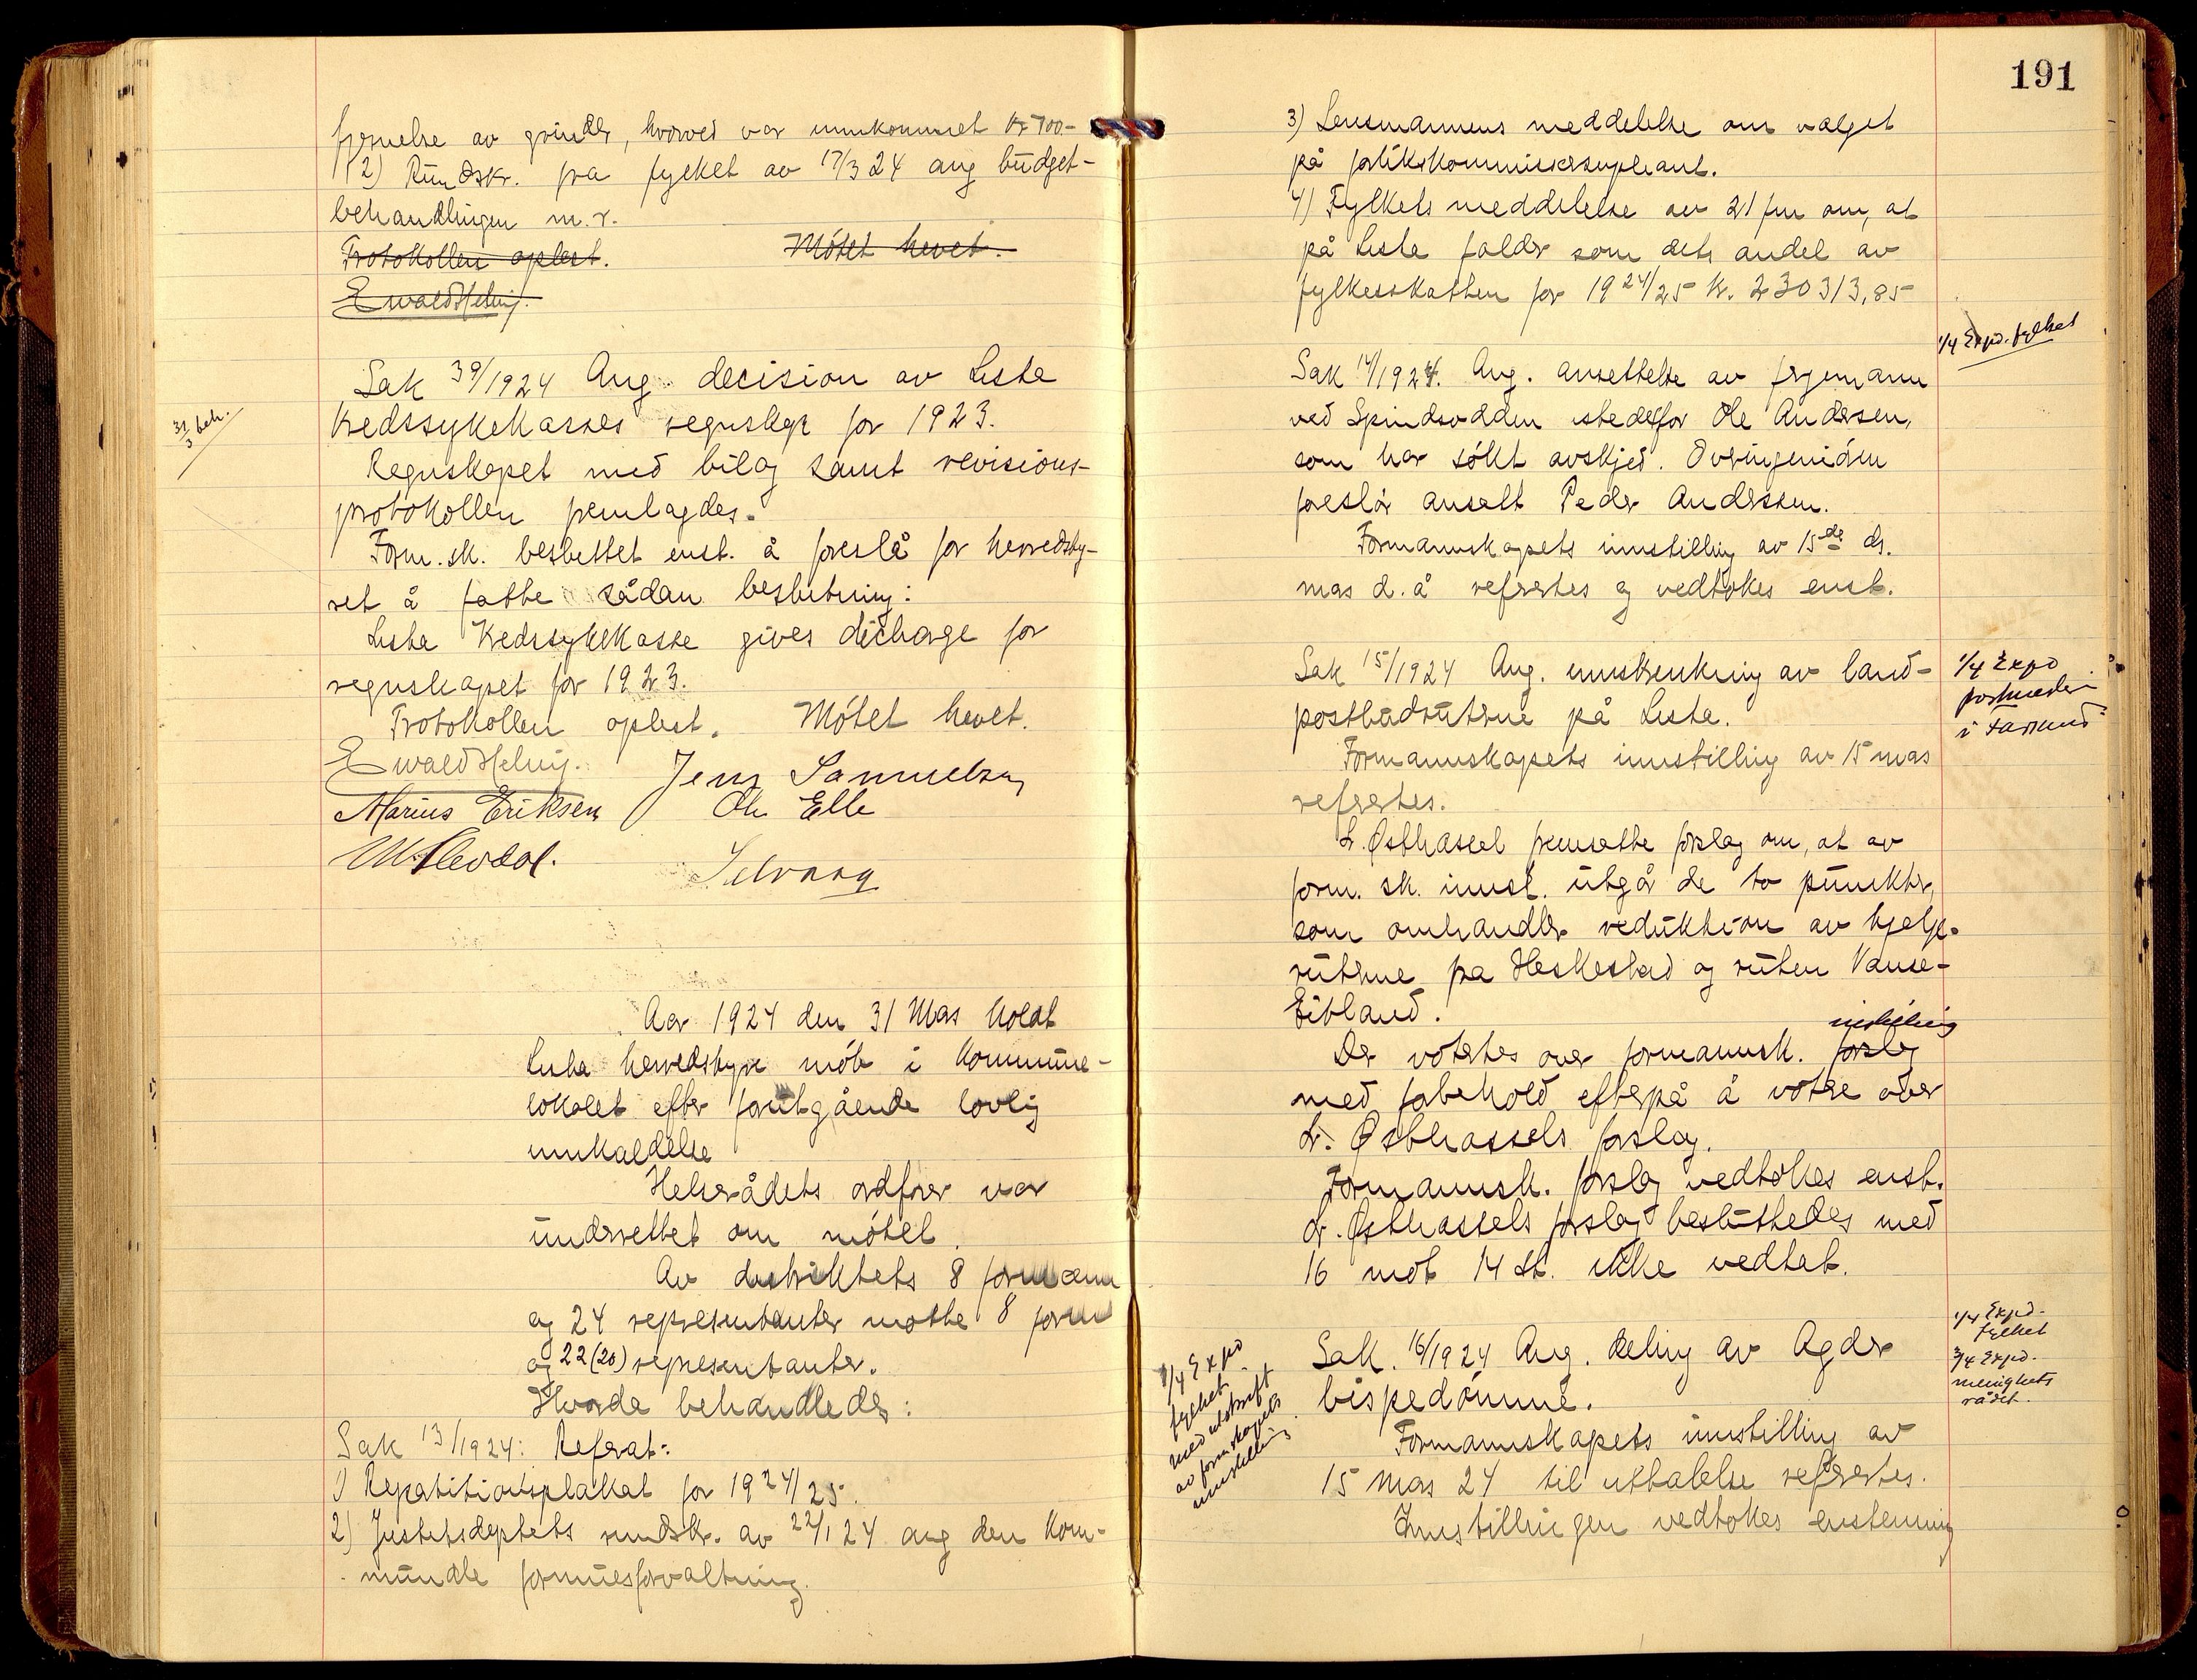 fjernelse av grinder, hvorved var innkommet kr 700.-
2) Rundskr. fra fylket av 17/3 24 ang budget-
behandlingen m. v.
Protokollen oplest. Mötet hevet.
Ewald Helvig.
31/3 beh.
Sak 39/1924 Ang. decision av Lista
Kredssykekasses regnskap for 1923.
Regnskapet med bilag samt revisions-
protokollen fremlagdes.
Form. sk. besluttet enst. å foreslå for herredsty-
ret å fatte sådan beslutning:
Lista Kredssykekasse gives decharge for
regnskapet for 1923.
Protokollen oplest. Mötet hevet.
Ewald Helvig. Jens Samuelsen
Marius Eriksen Ole Elle
Aar 1924 den 31 Mars holdt
Lista herredstyre möte i kommune-
lokalet efter forutgående lovlig
innkaldelse
Helserådets ordfører var
underrettet om mötet.
Av distriktets 8 formænn
og 24 representanter møtte 8 form
og 22 (20) representanter.
Hvorda behandledes:
Sak 13/1924: Referat:
1) Repartitionsplakat for 1924/25.
2) Justitsdeptets rundskr. av 22/1 24 ang den kom-
munale formuesforvaltning.
191
3) Lensmannens meddelelse om valget
på forlikskommissærsupleant.
4) Fylkets meddelelse av 21 frm om, at
på Lista falder som dets andel av
fylkesskatten for 1924/25 kr. 230313,85
1/4 Exp. fylket
Sak 14/1924. Ang. ansettelse av fergemann
ved Spindsodden istedetfor Ole Andersen,
som har sökt avskjed. Overingeniören
foreslår ansatt Peder Anderssen.
Formannskapets innstilling av 15de ds.
mars d. å refertes og vedtokes enst.
Sak 15/1924 Ang. innskrenkning av land-
postbudrutene på Lista.
1/4 Expd
postmester
i Farsund
Formannskapets innstilling av 15 mars
refertes.
L. Østhassel fremsatte forslag om, at av
form. sk. innst. utgår de to punkter,
som omhandler reduktion av hjelpe-
rutene fra Heskestad og ruten Vanse-
Eitland.
innstilling
Der votertes over formannsk. forslag
med forbehold efterpå å votere over
L. Østhassels forslag.
Formannsk. forslag vedtokes enst.
L. Østhassels forslag besluttedes med
16 mot 14 st. ikke vedtat.
1/4 Expd
fylket
med utskrift
av formskapets
innstilling
Sak. 16/1924 Ang. deling av Agder
bispedömme.
1/4 Expd.
fylket
3/4 Expd.
menighets
rådet.
Formannskapets innstilling av
15 mars 24 til uttalelse refertes.
Innstillingen vedtokes enstemmig